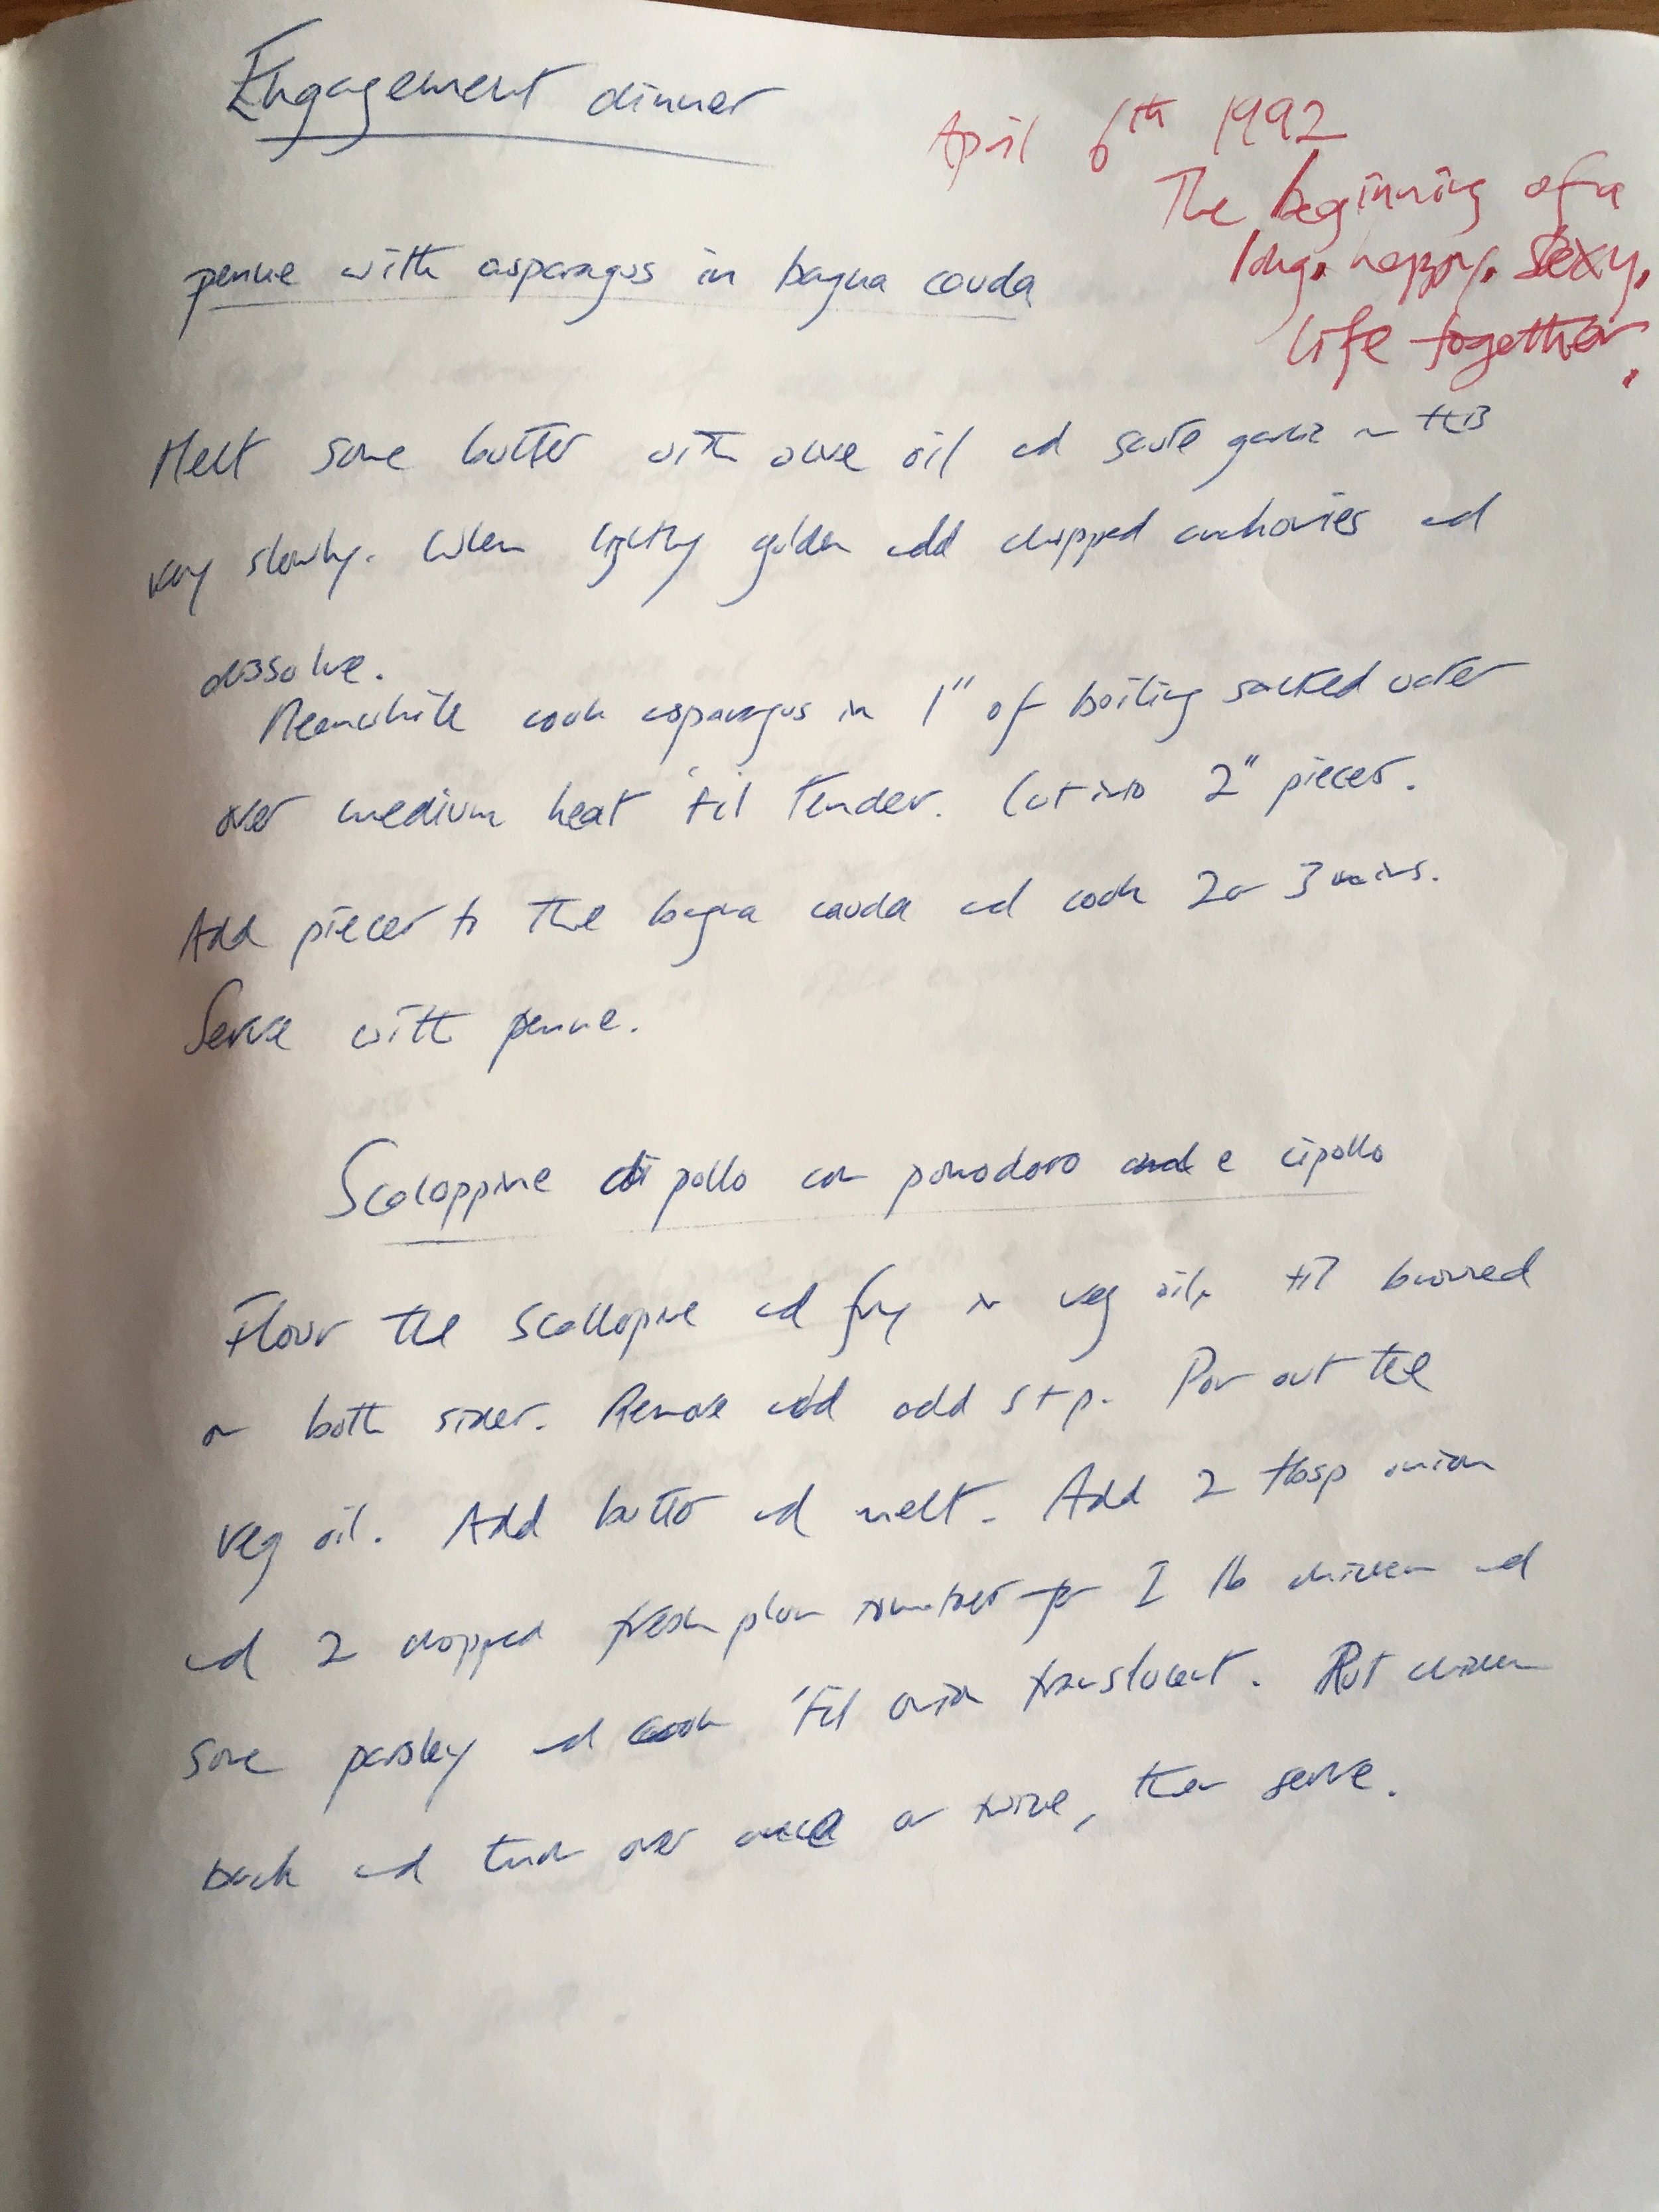 Engagement dinner
April 6th 1992
The beginning of a
long, happy, sexy,
life together.
penne with asparagus in bagna cauda
Melt some butter with olive oil and saute garlic in this
very slowly. When lightly golden add chopped anchovies and
dissolve.
Meanwhile cook asparagus in 1" of boiling salted water
over medium heat 'til tender. Cut into 2" pieces.
Add pieces to the bagna cauda and cook 2 or 3 mins.
Serve with penne.
Scaloppine di pollo con pomodoro e cipollo
Flour the scallopine and fry in veg oil, til browned
on both sides. Remove and add s + p. Pour out the
veg oil. Add butter and melt. Add 2 tbsp onion
and 2 chopped fresh plum tomatoes for 1 lb chicken and
some parsley and cook 'til onion translucent. Put chicken
back and turn over once or twice, then serve.